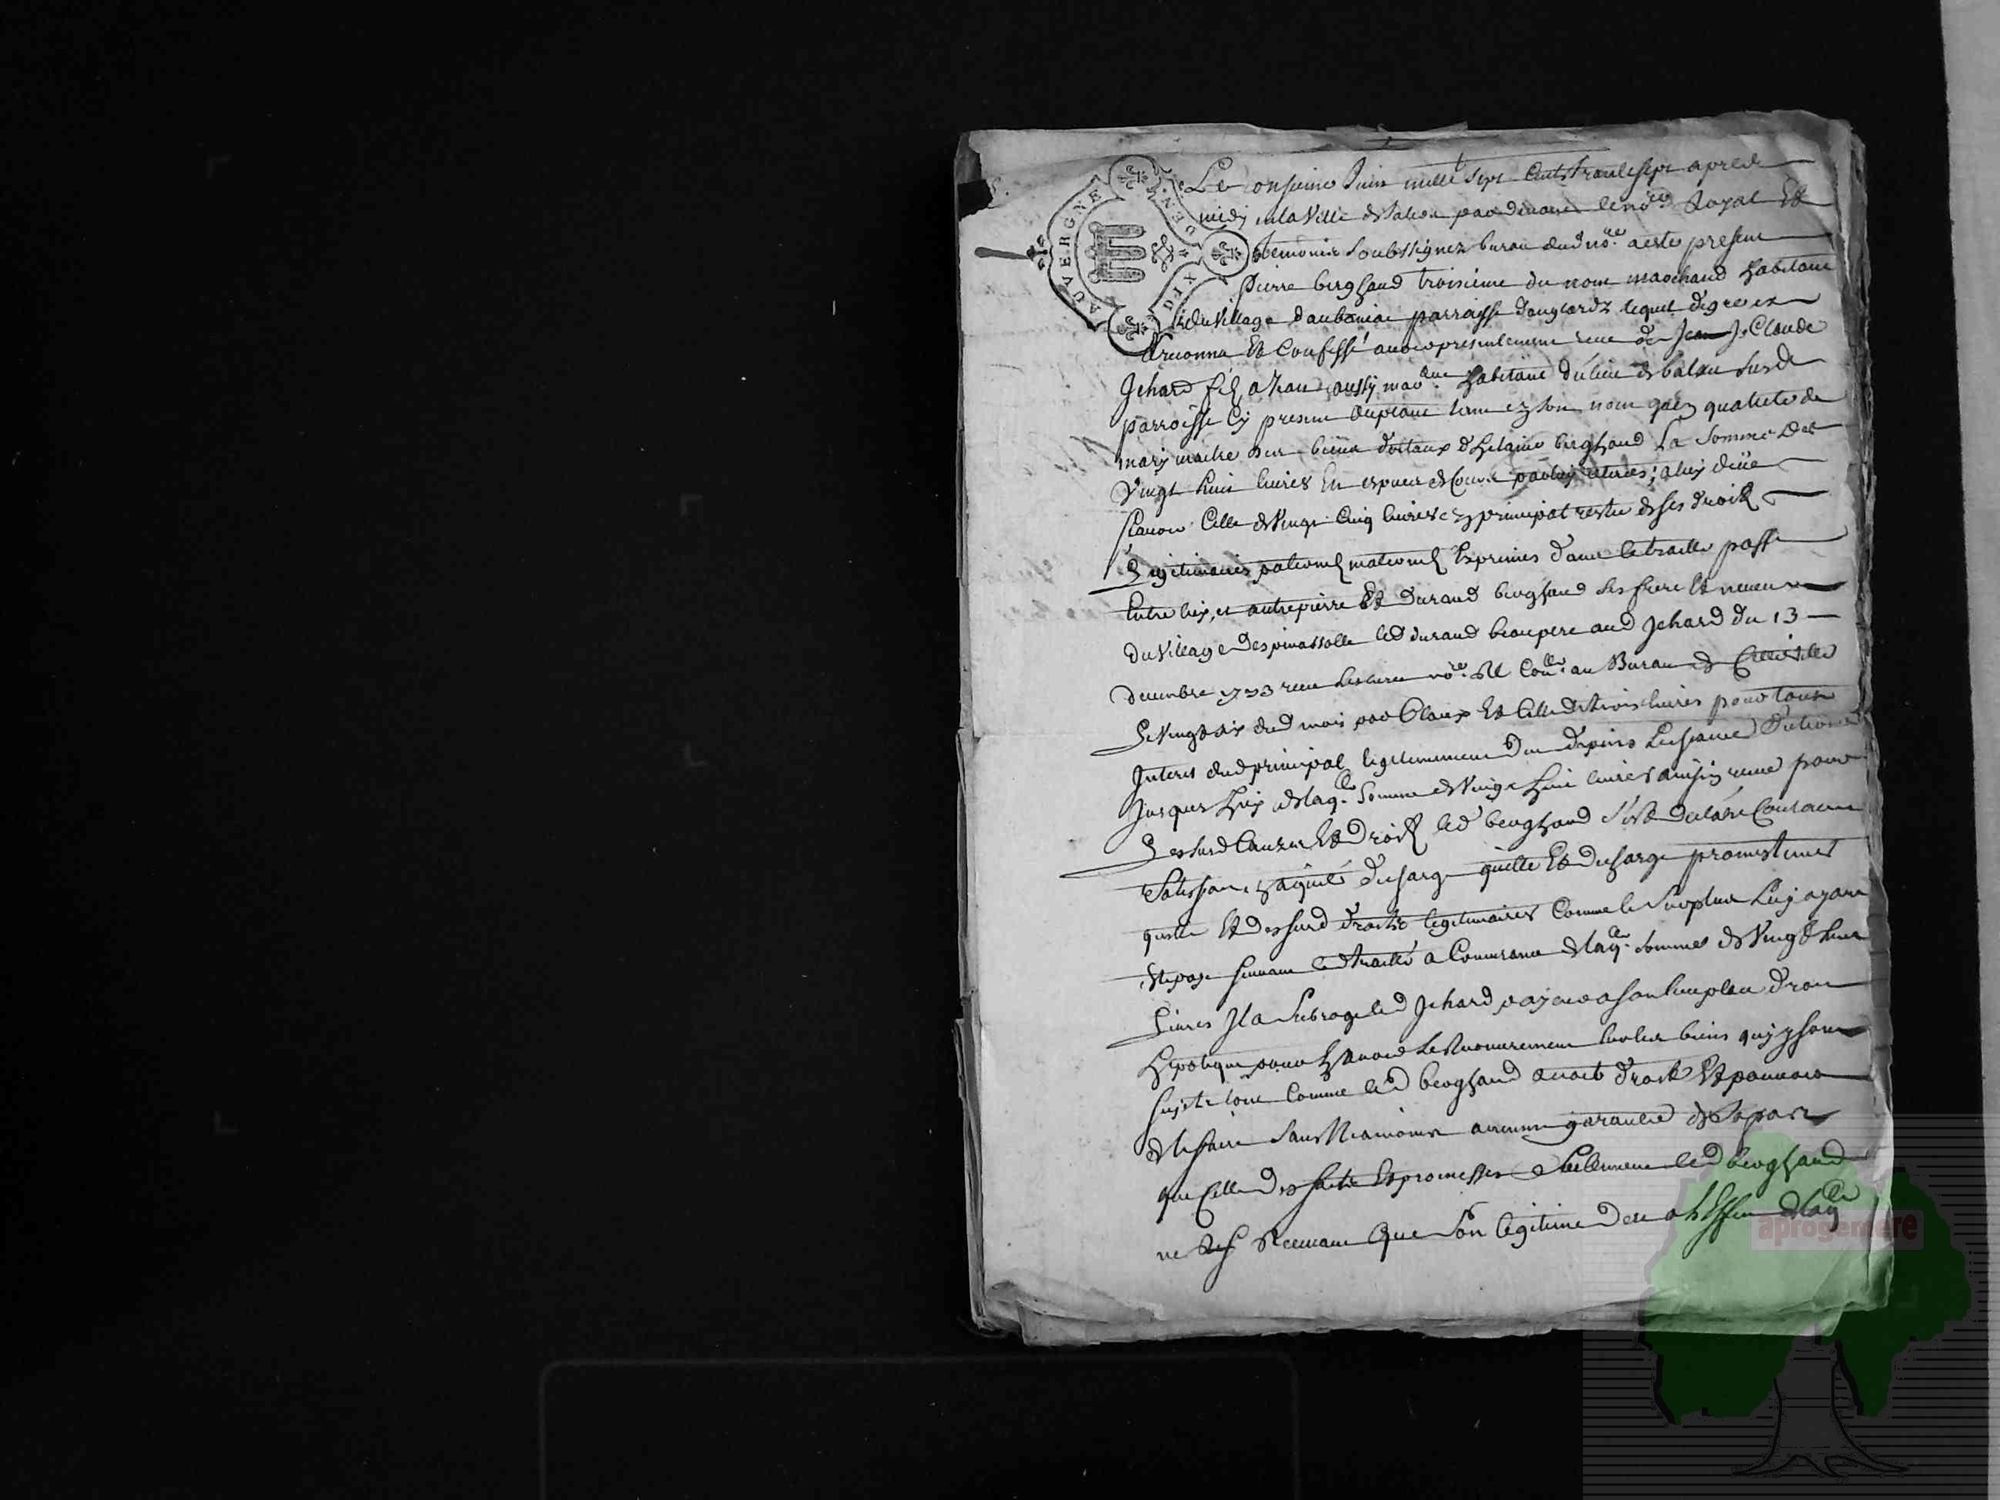 AUVERGNE DIX DEN.
Le onsieme Juin mille sept cents trante sept apres
midy en la ville de Salers par devant le no.re Royal Et
temoins soubssignez bureau dud no.re a este present
Pierre berghaud troisieme du nom marchand habitant
du village d'aubaniac parroisse d'anglardz lequel de gre a
reconnu Et Confessé avoir presentement receu de Jean Claude
Jehard fils a Jean aussy mar.and habitant du lieu de
parroisse Cy present acceptant tant en son nom qu'en qualité de
mary maitre des biens dottaux d'helaine berghaud La Somme de
Vingt huit livres En especes de Cours par luy retirées, a luy düe
sçavoir Celle de Vingt Cinq livres en principal reste de ses droits
Legitimaires paternels maternels Exprimés dans le traitte passé
Entre luy, et autre pierre Et Durand berghaud ses frere Et neveu
du Village despinassolle led durand beaupere aud Jehard du 13
decembre 1723 receu no.re Et Con.lle au Bureau de
Le Vingt six dud mois par Claux Et Celle de trois livres pour tous
Interest dud principal legitimement du depuis
Jusques huy de laq.lle Somme de Vingt huit livres ainsin receue pour
Les susd Causes Et Droits led berghaud s'est declaré Contant
Satisfait, en a quitté decharge quitte Et decharge promis tenir
quitte Et des susd droits legitimaires Comme le surplus Luy ayant
Eté payé suivant led traitté a Concurance de laq.lle sommes de Vingt huit
Livres Il a subrogé led Jehard en son lieu place droit
hipoteque pour En avoir le recouvrement sur les biens quy y sont
sujets tout Comme led berghaud avoit droit Et pouvoir
de le faire sans Neamoins aucune garantie de sa part
que Celle de ses faits Et promesses Et led berghaud
ne Recevant Que Son legitime deu a l'effet de laq.lle
aprogemere